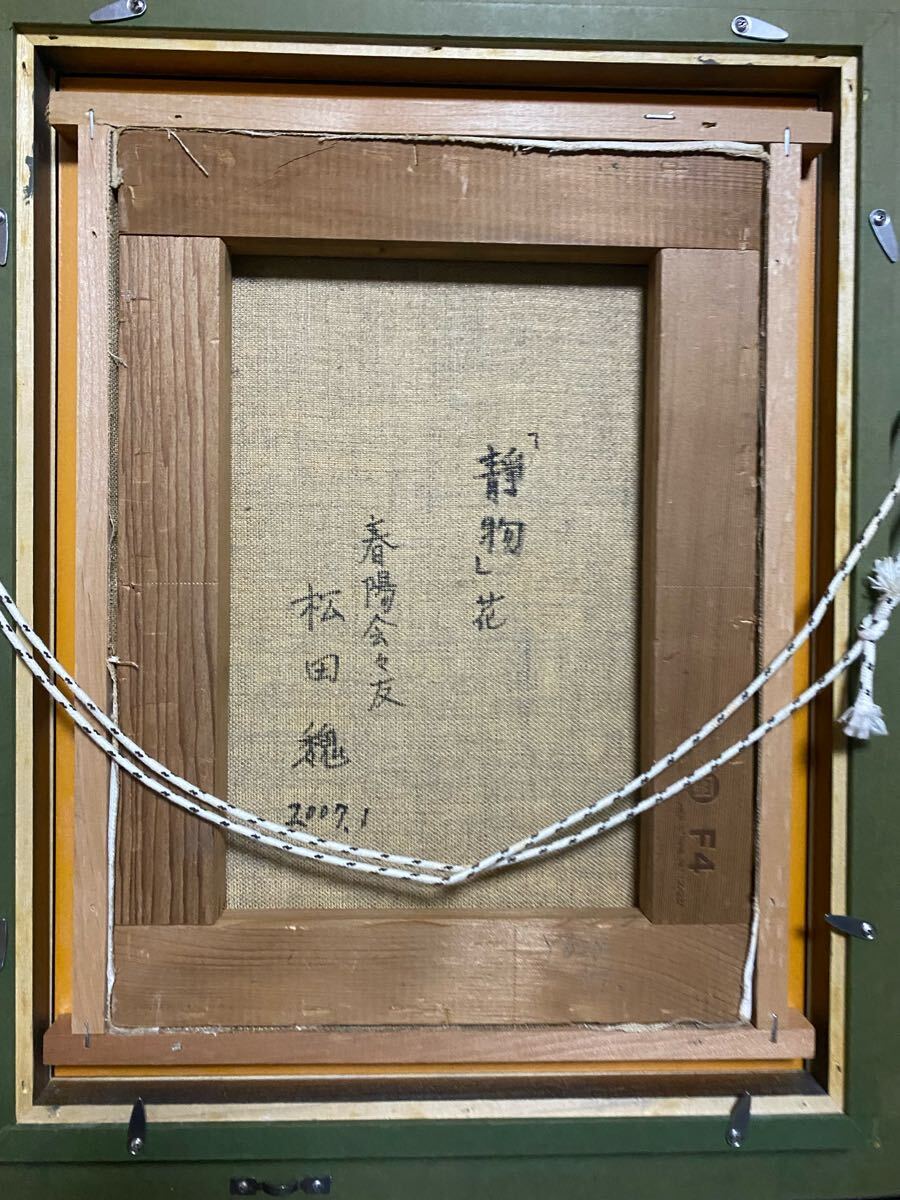 「静物」花
春陽会々友
松田 穐
2007.1
F4